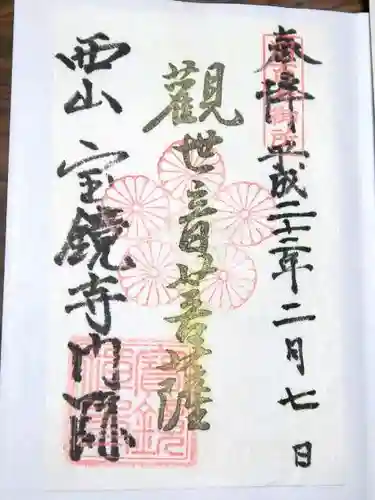 奉拝 平成二十二年二月七日
觀世音菩薩
西山 宝鏡寺門跡